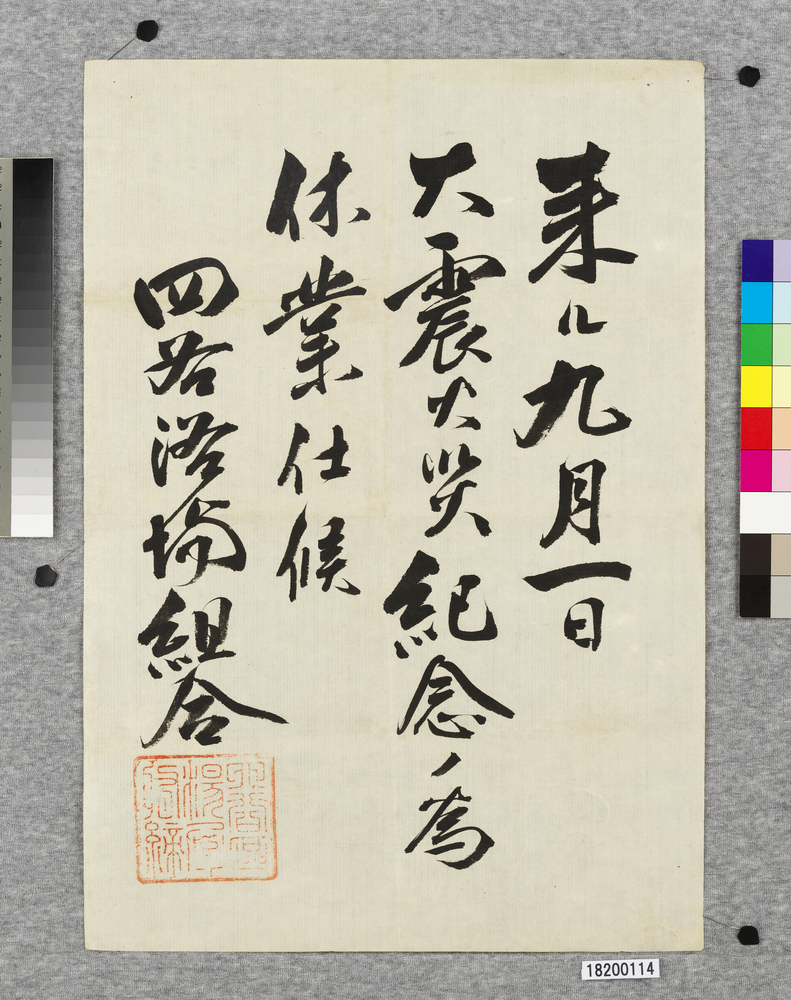 来ル九月一日
大震火災紀念ノ為
休業仕候
四谷浴場組合
18200114